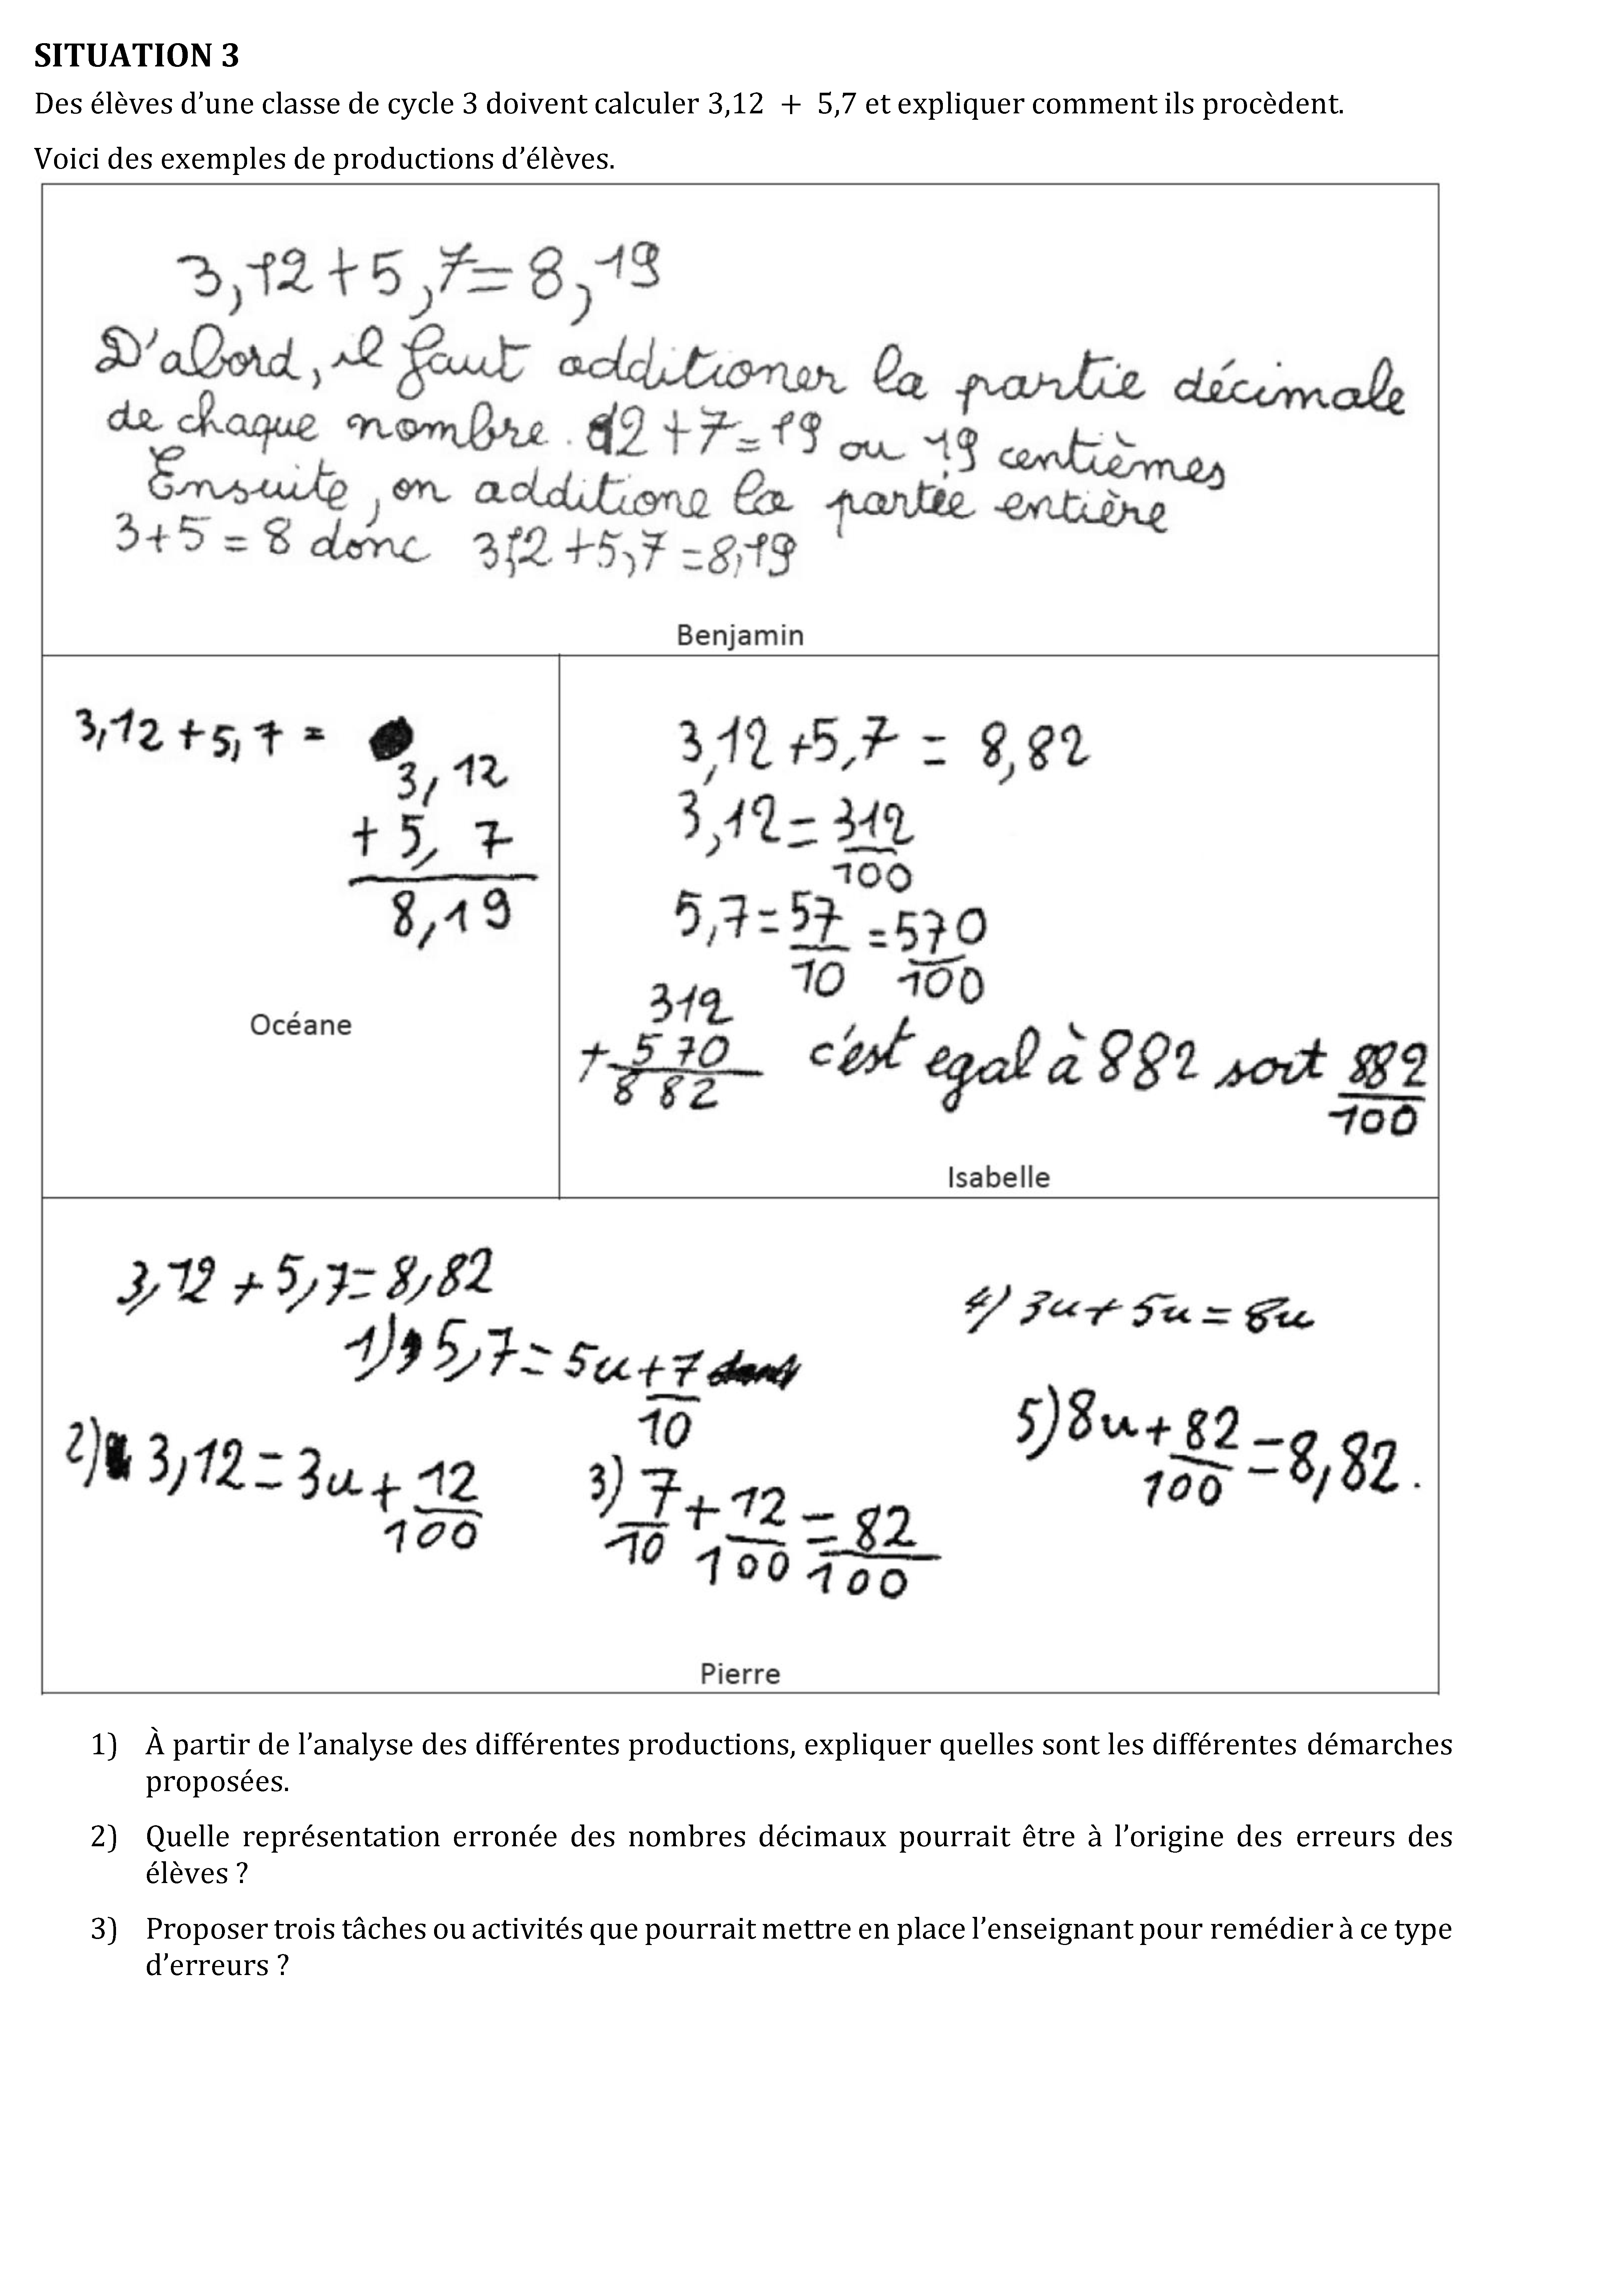 SITUATION 3
Des élèves d’une classe de cycle 3 doivent calculer 3,12 + 5,7 et expliquer comment ils procèdent.
Voici des exemples de productions d’élèves.
3,12+5,7=8,19
D'abord, il faut additioner la partie décimale
de chaque nombre. 12+7=19 ou 19 centièmes
Ensuite, on additione la partie entière
3+5=8 donc 3,12+5,7=8,19
Benjamin
3,12+5,7=
3,12
+ 5, 7
8,19
Océane
3,12+5,7 = 8,82
3,12 = 312/100
5,7 = 57/10 = 570/100
312
+ 570
882
c'est egal à 882 soit 882/100
Isabelle
3,12+5,7=8,82
1) 5,7=5u+7/10
2) 3,12=3u+12/100
3) 7/10+12/100=82/100
4) 3u+5u=8u
5) 8u+82/100=8,82.
Pierre
1) À partir de l’analyse des différentes productions, expliquer quelles sont les différentes démarches
proposées.
2) Quelle représentation erronée des nombres décimaux pourrait être à l’origine des erreurs des
élèves ?
3) Proposer trois tâches ou activités que pourrait mettre en place l’enseignant pour remédier à ce type
d’erreurs ?